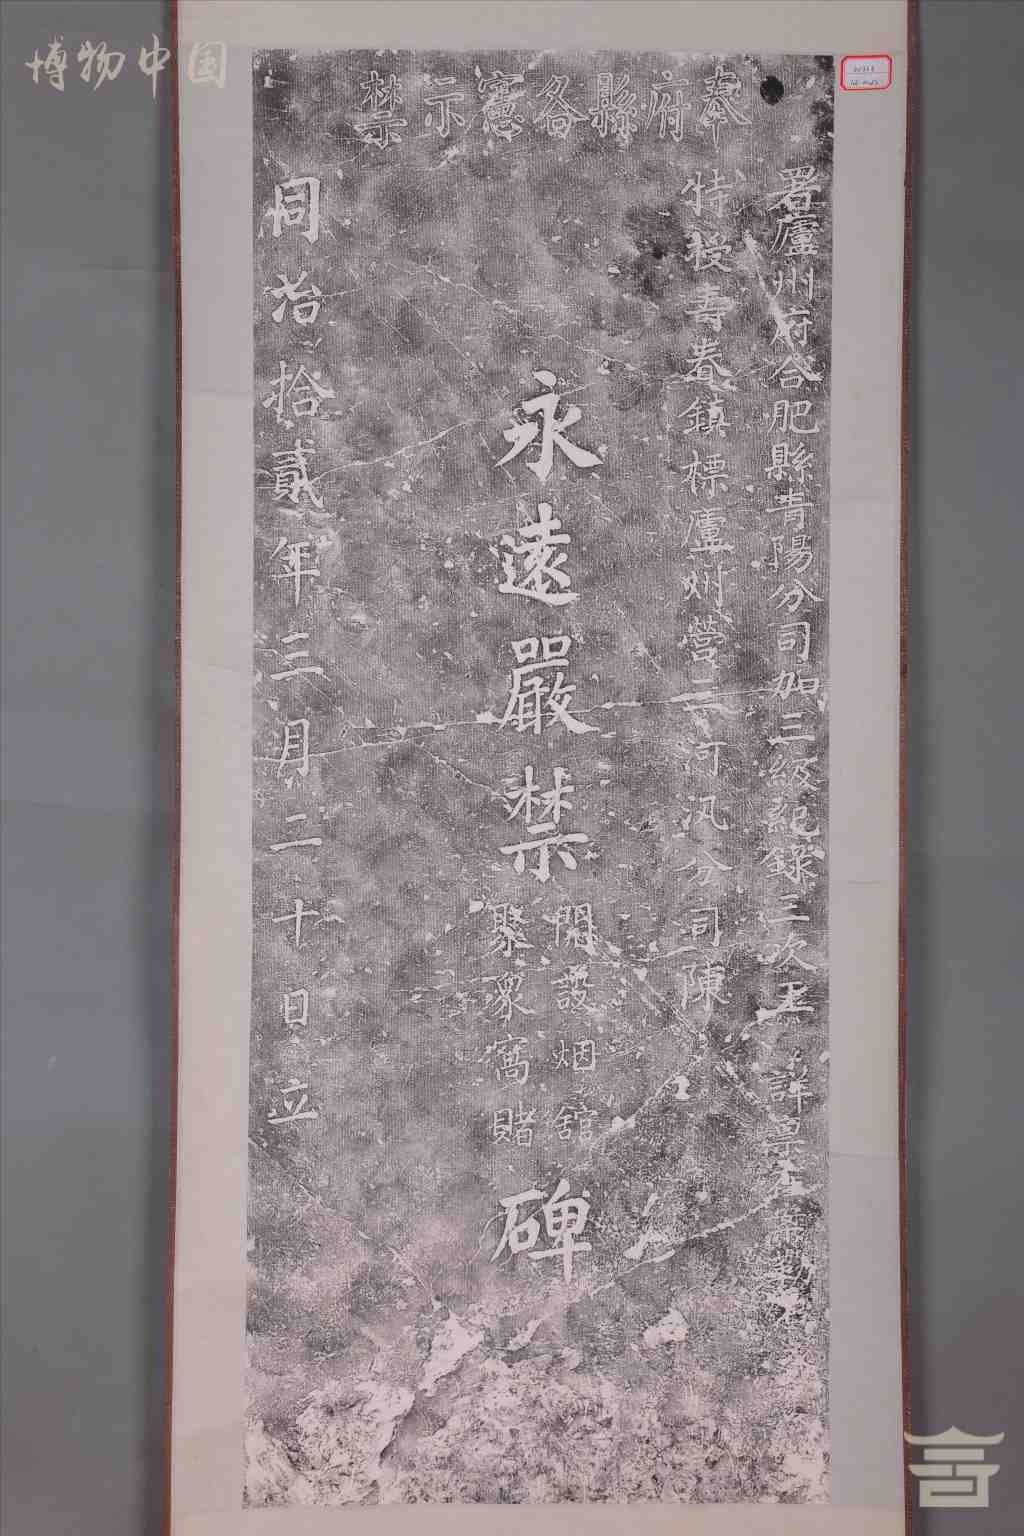 博物中国
奉府縣各憲示禁
署廬州府合肥縣青陽分司加三級紀錄三次王 詳稟
特授壽春鎮標廬州營三河汛分司陳
永遠嚴禁
開設烟館
聚眾窩賭
碑
同治拾貳年三月二十日立